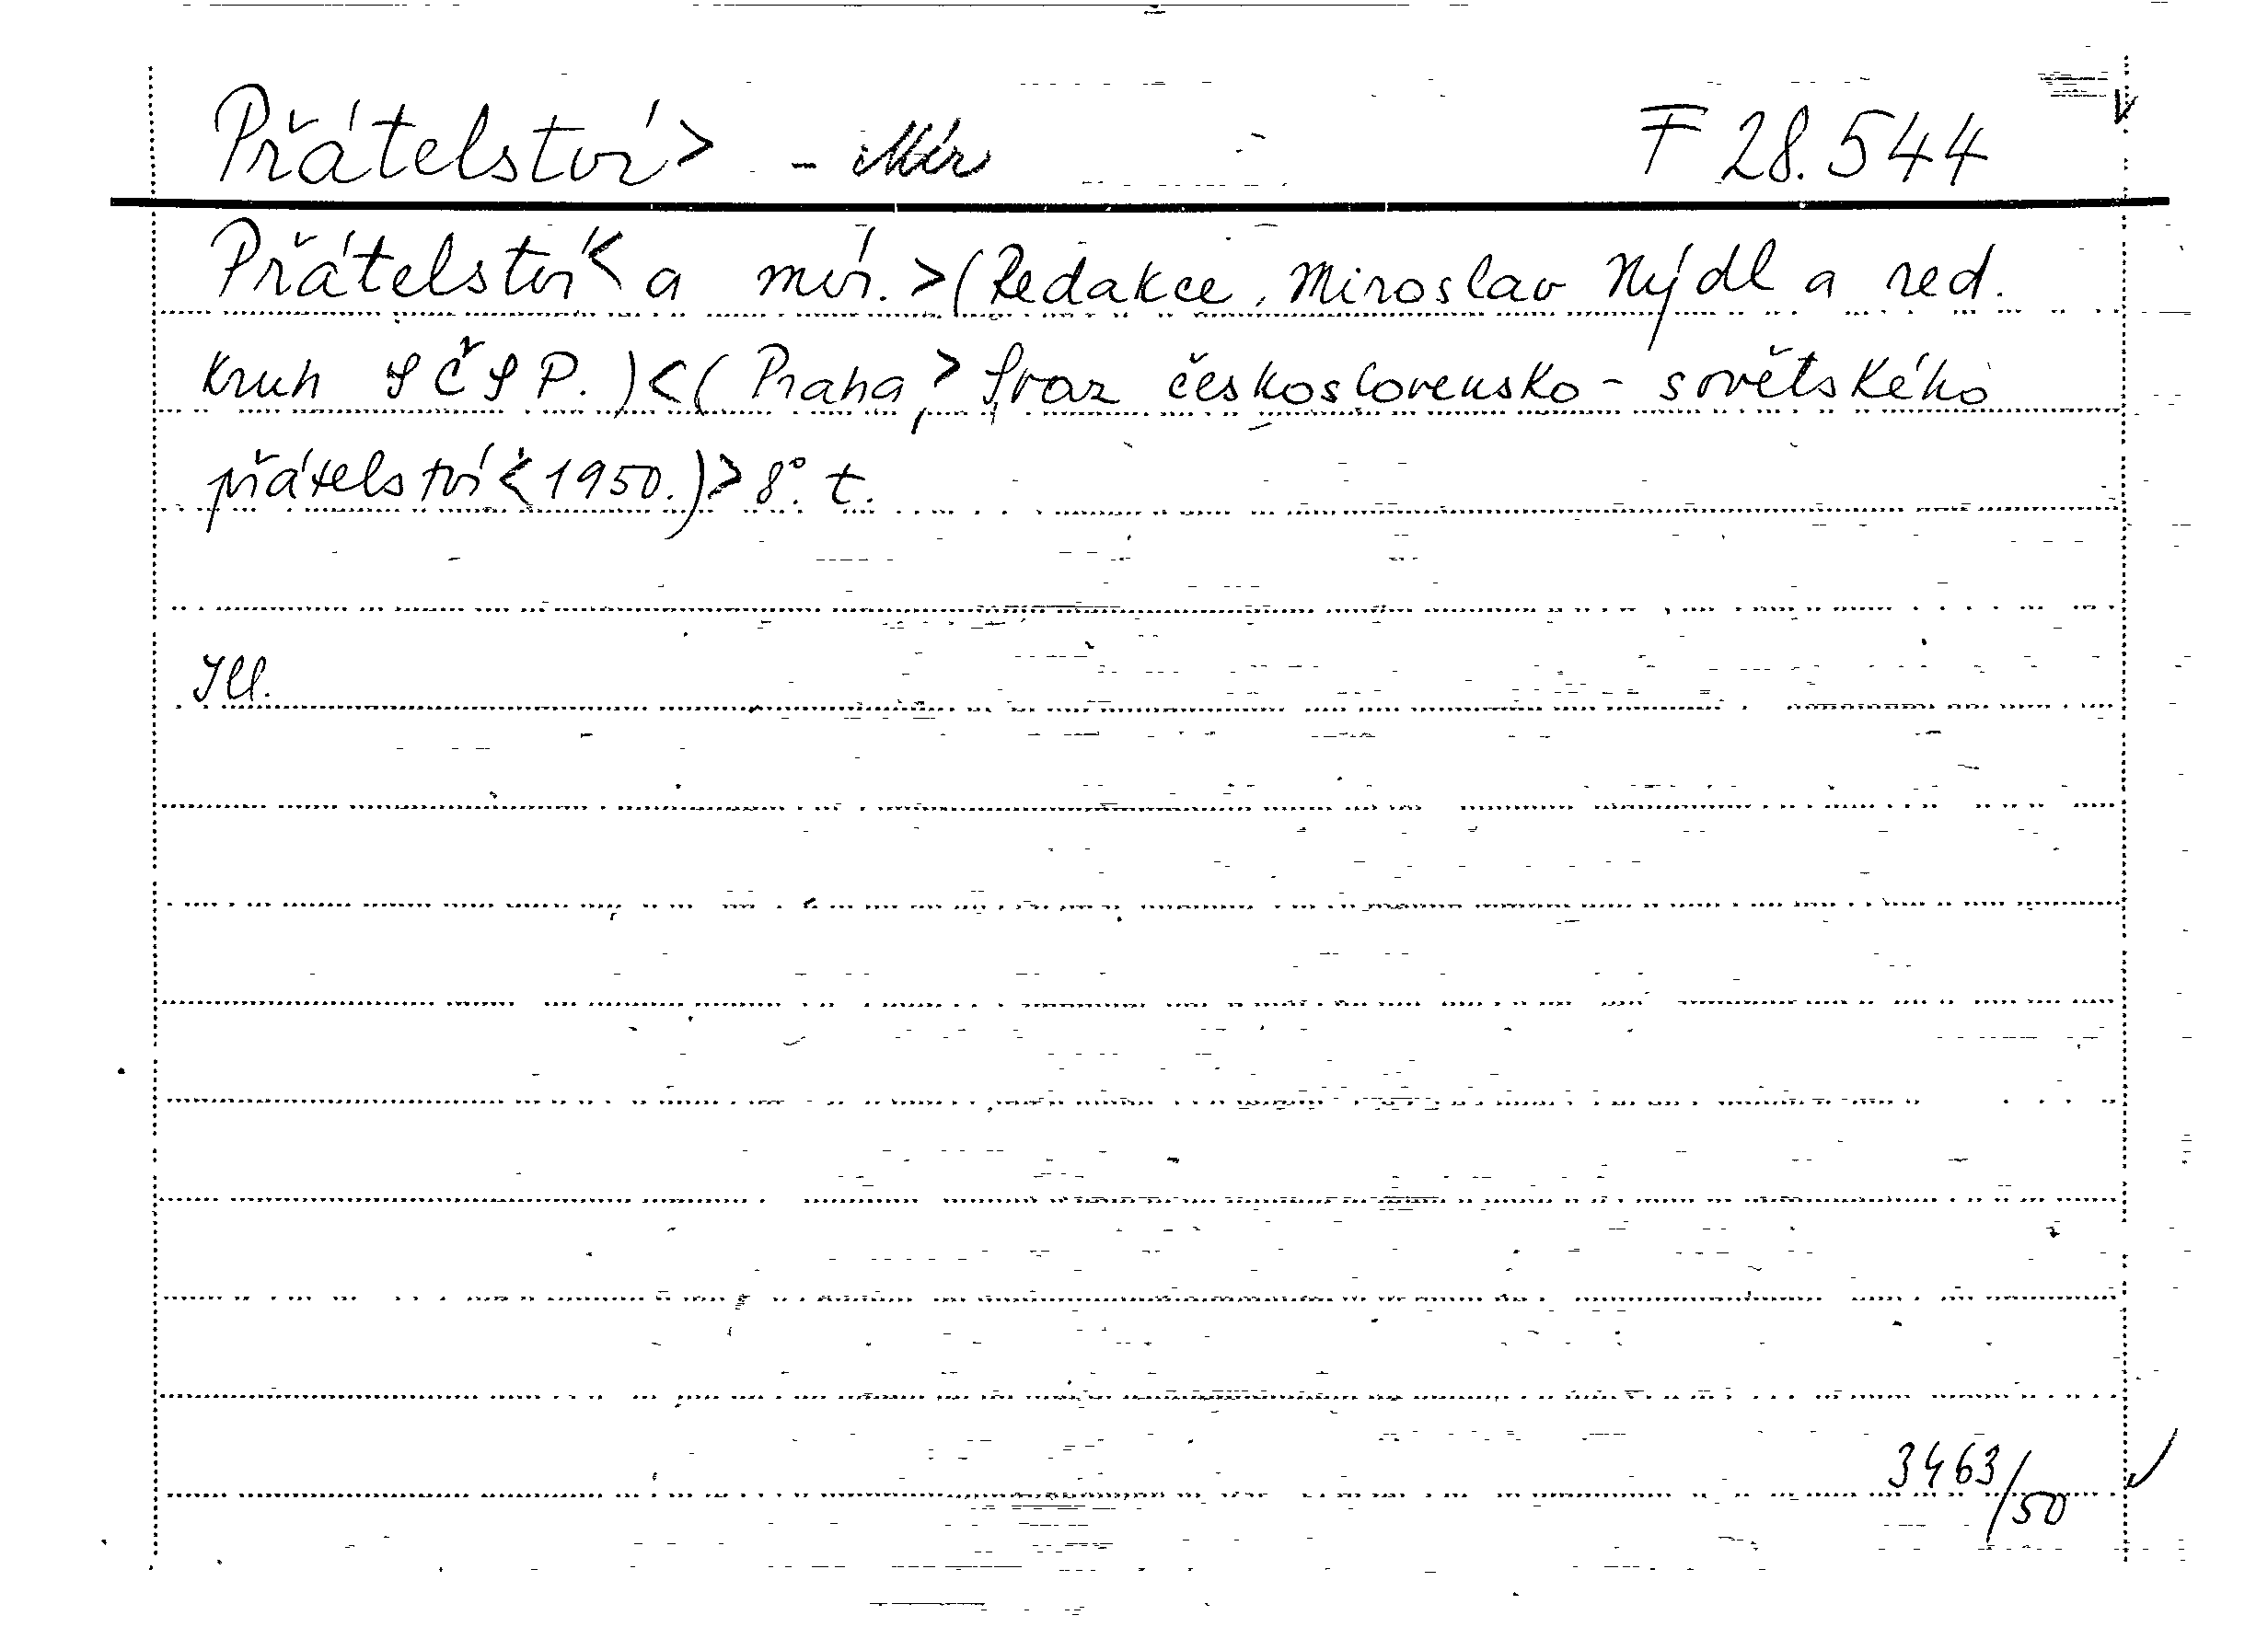 Přátelství> - Mír F 28.544
Přátelství< a mír.>(Redakce, Miroslav Nýdl a red.
kruh SČSP.)<(Praha,> Svaz československo-sovětského
přátelství<1950.)> 8°. t.
Ill.
3463/50